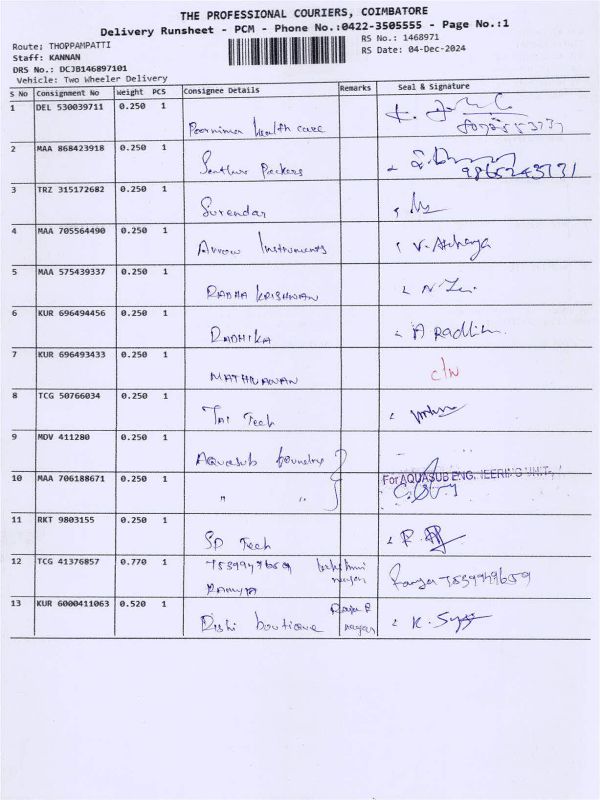 THE PROFESSIONAL COURIERS, COIMBATORE
Delivery Runsheet - PCM - Phone No.:0422-3505555 - Page No.:1
Route; THOPPAMPATTI
RS No.: 1468971
Staff: KANNAN
RS Date: 04-Dec-2024
DRS No.: DCJB146897101
Vehicle: Two Wheeler Delivery
S No Consignment No Weight PCS Consignee Details Remarks Seal & Signature
1 DEL 530039711 0.250 1
Poornima health care
2 MAA 868423918 0.250 1
Packers 9865243731
3 TRZ 315172682 0.250 1
Surendar
4 MAA 705564490 0.250 1
Arrow Instruments V. Atchaya
5 MAA 575439337 0.250 1
RADHA KRISHNAN
6 KUR 696494456 0.250 1
RADHIKA A Radhika
7 KUR 696493433 0.250 1
MATHIVANAN
8 TCG 50766034 0.250 1
Tech
9 MDV 411280 0.250 1
Aquasub foundry
10 MAA 706188671 0.250 1
For AQUASUB ENGINEERING UNIT
" "
11 RKT 9803155 0.250 1
SP Tech
12 TCG 41376857 0.770 1
7539949659 nagar
RAMYA Ramya 7539949659
13 KUR 6000411063 0.520 1
Rishi boutique nagar